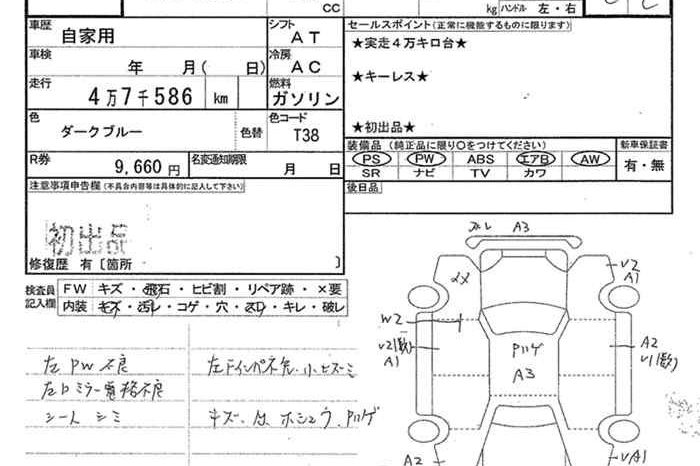 CC
kg ハンドル 左・右
車歴 自家用 シフト AT
車検 年 月( 日) 冷房 AC
走行 4万7千586 km 燃料 ガソリン
色 ダークブルー 色替 色コード T38
R券 9,660円 名変通知期限 月 日
注意事項申告欄(不具合内容等は具体的に記入して下さい)
初出品
修復歴 有〔箇所 〕
セールスポイント(正常に機能するものに限ります)
★実走4万キロ台★
★キーレス★
★初出品★
装備品(純正品に限り○をつけてください) 新車保証書
PS PW ABS エアB AW 有・無
SR ナビ TV カワ
後日品
検査員記入欄 FW キズ・飛石・ヒビ割・リペア跡・×要
内装 キズ・汚レ・コゲ・穴・スリ・キレ・破レ
左PW不良
左Dミラー電格不良
シート シミ
キズ・凹 ホシュウ Pハゲ
ズレ A3
メメ
U2
A1
W2
U2(数)
A1
Pハゲ
A3
A2
U1(数)
A2
UA1